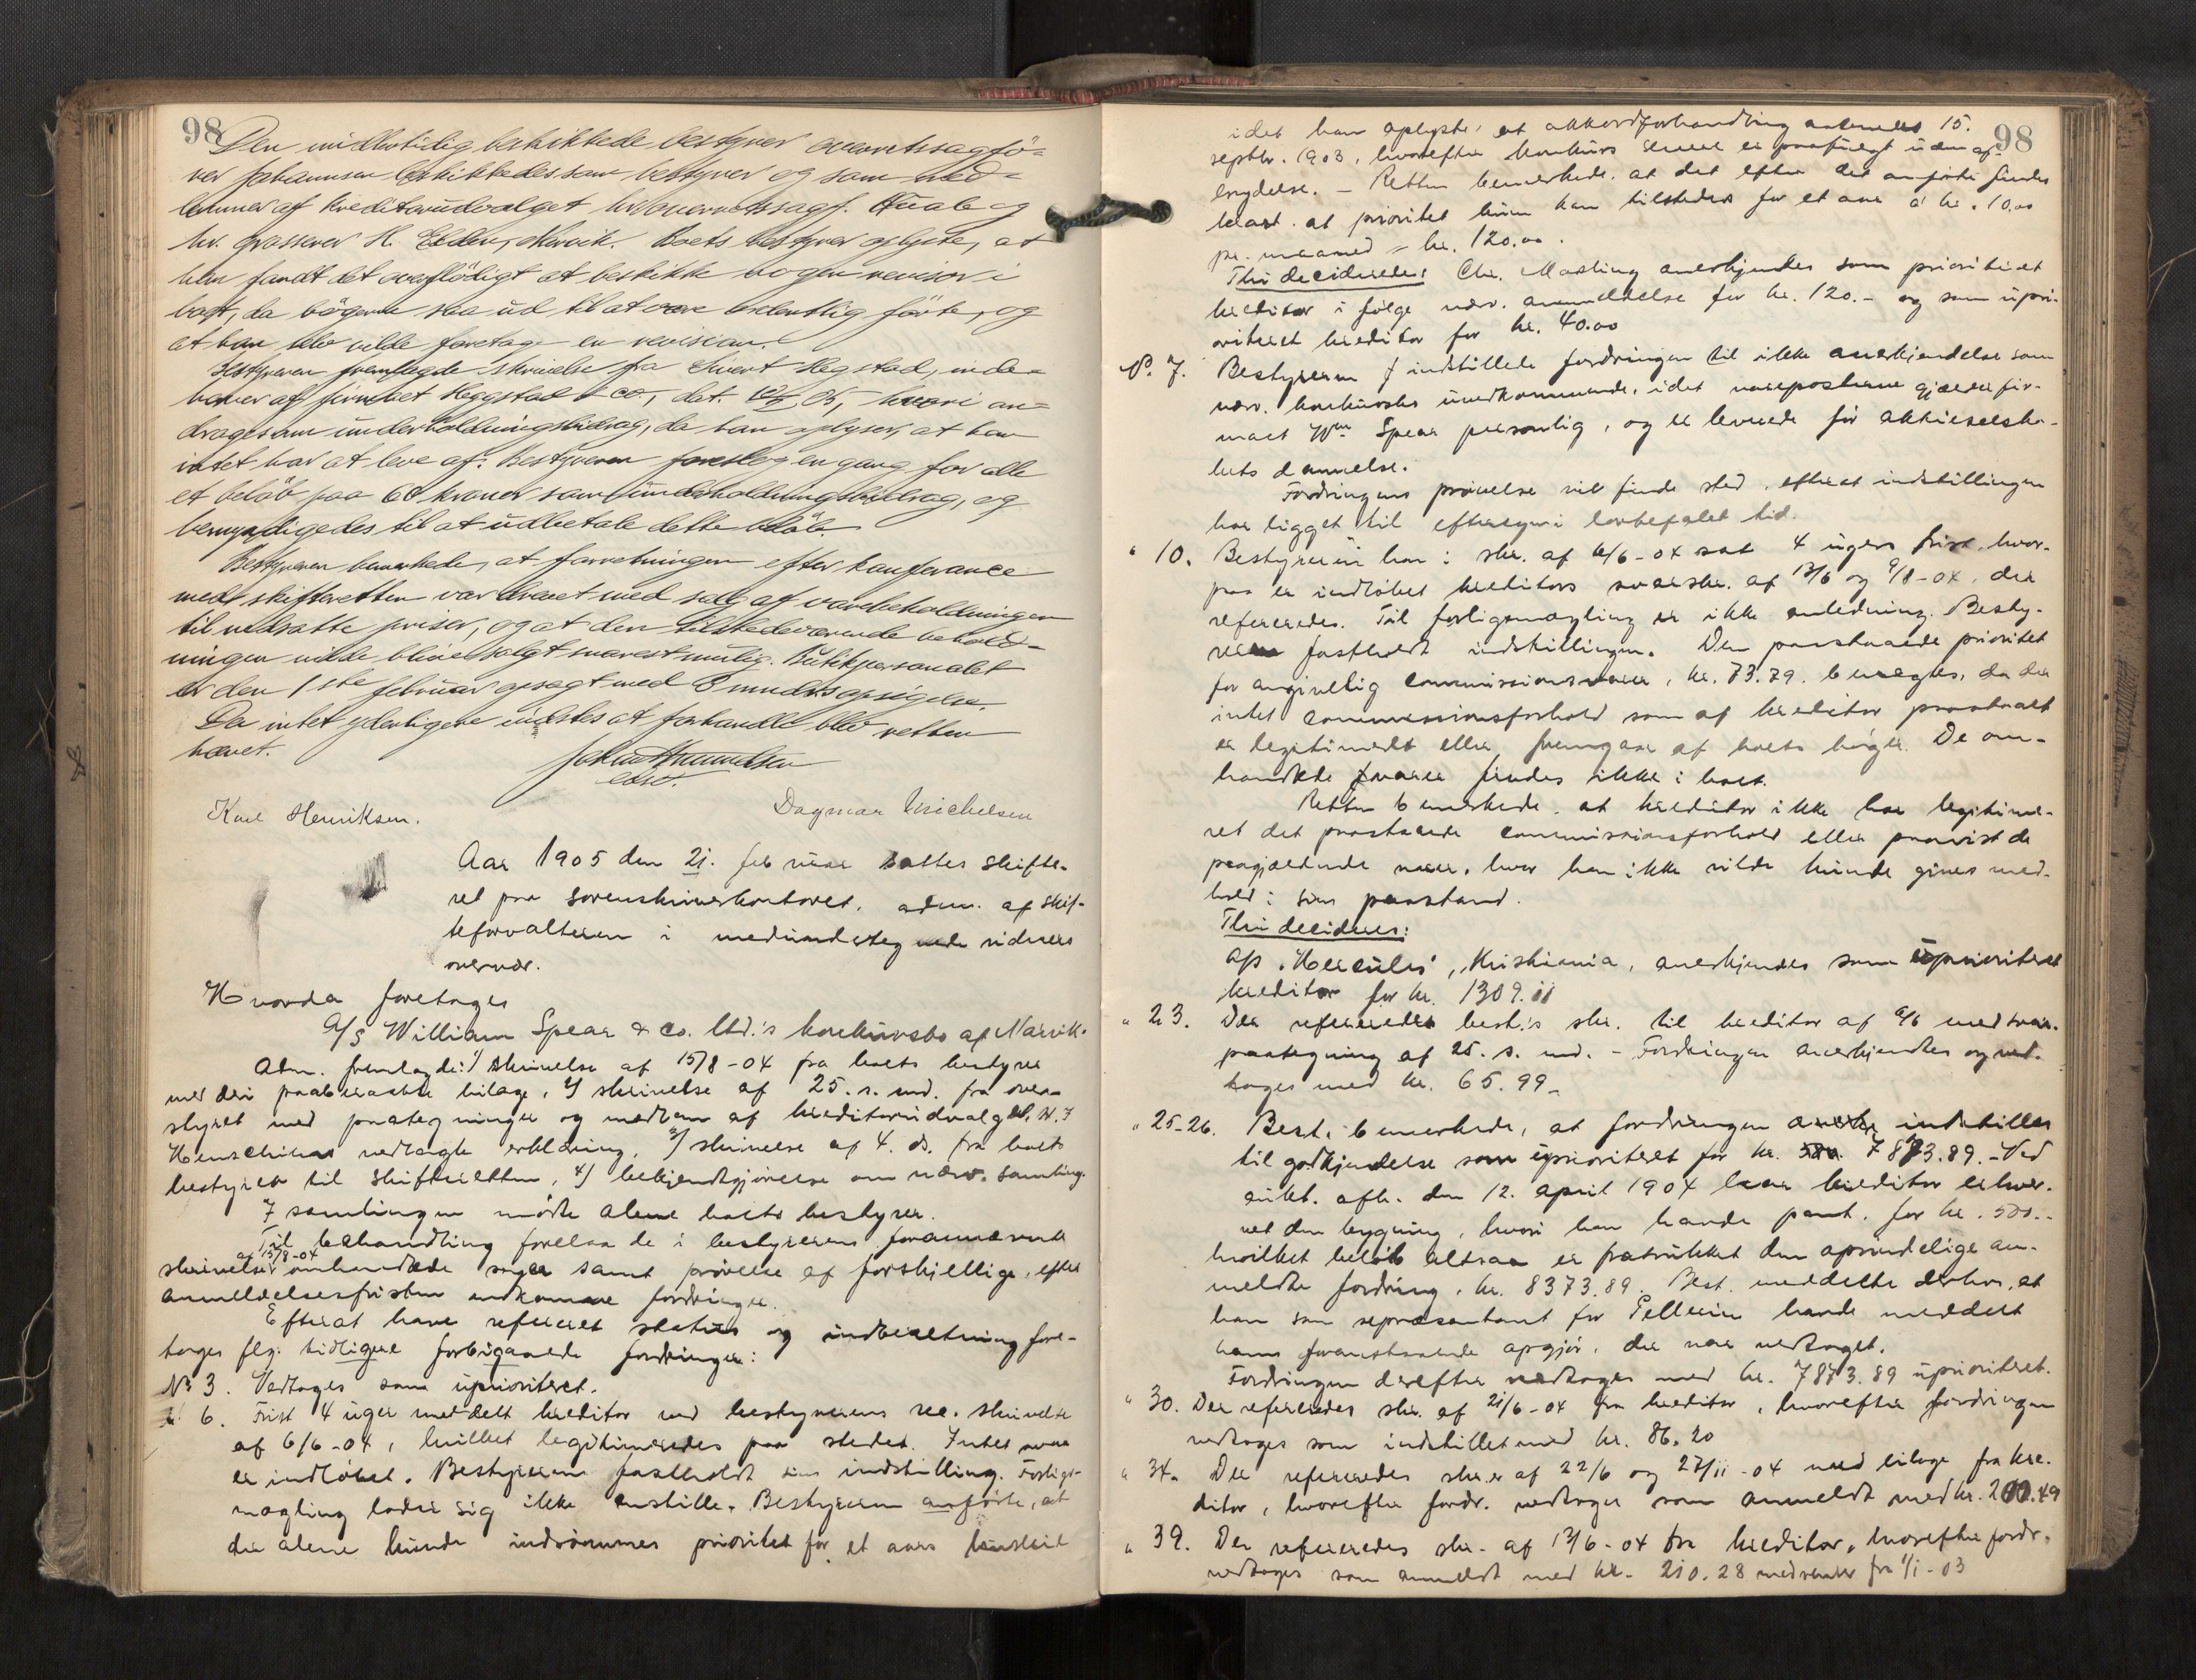 98
Den midlertidig beskikkede bestyrer overretssagfö-
rer Johannesen beskikkedes som bestyrer og som med-
lemmer af kreditorudvalget hr. overretssagf. Auale og
hr. grosserer H. Elden, Narvik. Boets bestyrer oplyste, at
han fandt det overflödigt at beskikke nogen revisor i
boet, da bögerne saa ud til at være ordentlig förte, og
at han selv vilde foretage en revision.
Bestyreren fremlagde skrivelse fra Sivert Hegstad, inde-
haver af firmaet Heggstad & co., dat. 05, hvori an-
drages om underholdningsbidrag, da han oplyser, at han
intet har at leve af. Bestyreren foreslog en gang for alle
et belöb paa 60 kroner som underholdningsbidrag, og
bemyndigedes til at udbetale dette belöb.
Bestyreren bemerkede, at forretningen efter konferance
med skifteretten var drevet med salg af varebeholdningen
til nedsatte priser, og at den tilstedeværende behold-
ningen vilde blive solgt snarest mulig. Butikpersonalet
er den 1ste februar opsagt med 3 mndrs opsigelse.
Da intet yderligere indstes at forhandle blev retten
hævet.
Karl Henriksen. Dagmar Michelsen
Aar 1905 den 21. februar sattes skifte-
ret paa sorenskriverkontoret, adm. af skif-
teforvalteren i medundertegnede vidners
overvær.
Hvorda foretoges
A/S William Spear & Co. Ltd.'s konkursbo af Narvik.
Adm. fremlagde: 1/ skrivelse af 15/8-04 fra boets bestyrer
med deri paaberaabte bilage, 2/ skrivelse af 25. s. md. fra over-
styret med paategninger og medlem af kreditorudvalget, H. J
Henschiens vedlagte erklæring, 3/ skrivelse af 4. ds. fra boets
bestyrer til skifteretten, 4/ bekjendtgjørelse om nærv. samling.
I samlingen mødte alene boets bestyrer.
Til behandling forelaa de i bestyrerens forannævnte
af 15/8-04
skrivelse omhandlede sager samt prøvelse af forskjellige, efter
anmeldelsesfristen indkomne fordringer.
Efterat have refereret status og indberetning fore-
toges flg. tidligere forbigaaede fordringer:
No 3. Vedtoges som uprioriteret.
" 6. Frist 4 uger meddelt kreditor ved bestyrerens rec. skrivelse
af 6/6-04, hvilket legitimeredes paa stedet. Intet svar
er indløbet. Bestyreren fastholdt sin indstilling. Forligs-
mægling lader sig ikke anstille. Bestyreren anførte, at
der alene kunde indrømmes prioritet for et aars
98
idet han oplyste, at akkordforhandling aabnedes 15.
septbr. 1903, hvorefter konkurs senere er paafulgt uden af-
brydelse. – Retten bemerkede, at det efter det anførte findes
klart, at prioritet kun kan tilstedes for et aar à kr. 10.00
pr. maaned = kr. 120.00.
Thi decideredes: Chr. Masling anerkjendes som prioriteret
kreditor i følge nærv. anmeldelse for kr. 120.- og som upri-
oriteret kreditor for kr. 40.00
No. 7. Bestyreren indstillede fordringen til ikke anerkjendelse som
nærv. konkursbo uvedkommende, idet vareposterne gjælder fir-
maet Wm Spear personlig, og er leverede før aktieselska-
bets dannelse.
Fordringens prøvelse vil finde sted, efterat indstillingen
har ligget til eftersyn i lovbefalet tid.
" 10. Bestyreren har i skr. af 6/6-04 sat 4 ugers frist, hvor-
paa er indløbet kreditors svarskr. af 13/6 og 9/8-04, der
refereredes. Til forligsmægling er ikke anledning. Besty-
reren fastholdt indstillingen. Den paastaaede prioritet
for angivelig commissionsvarer, kr. 73.79, benegtes, da der
intet commissionsforhold som af kreditor paastaaet
er legitimeret eller fremgaar af boets bøger. De om-
handlede varer findes ikke i boet.
Retten bemerkede, at kreditor ikke har legitime-
ret det paastaaede commissionsforhold eller paavist de
paagjældende varer, hvor han ikke vilde kunde gives med-
hold i sin paastand.
Thi decideres:
A/S "Hercules", Kristiania, anerkjendes som uprioriteret
kreditor for kr. 1309.11
" 23. Der refereredes best.'s skr. til kreditor af 6/6 med svar-
paategning af 25. s. md. – Fordringen anerkjendtes og ved-
toges med kr. 65.99.
" 25-26. Best. bemerkede, at fordringen indstilles
til godkjendelse som uprioriteret for kr. 7873.89. – Ved
aukt. afh. den 12. april 1904 har kreditor erhver-
vet den bygning, hvori han havde pant, for kr. 500.-
hvilket beløb altsaa er fratrukket den oprindelige an-
meldte fordring, kr. 8373.89. Best. meddelte derhos, at
han som representant for Pellerin havde meddelt
hans foranstaaende opgjør, der var vedtaget.
Fordringen derefter vedtages med kr. 7873.89 uprioriteret.
" 30. Der refereredes skr. af 21/6-04 fra kreditor, hvorefter fordringen
vedtoges som indstillet med kr. 86.20
" 34. Der refereredes skr.er af 22/6 og 27/11-04 med bilage fra kre-
ditor, hvorefter fordr. vedtoges som anmeldt med kr. 200.49
" 39. Der refereredes skr. af 13/6-04 fra kreditor, hvorefter fordr.
vedtoges som anmeldt med kr. 210.28 med renter fra 1/1-03